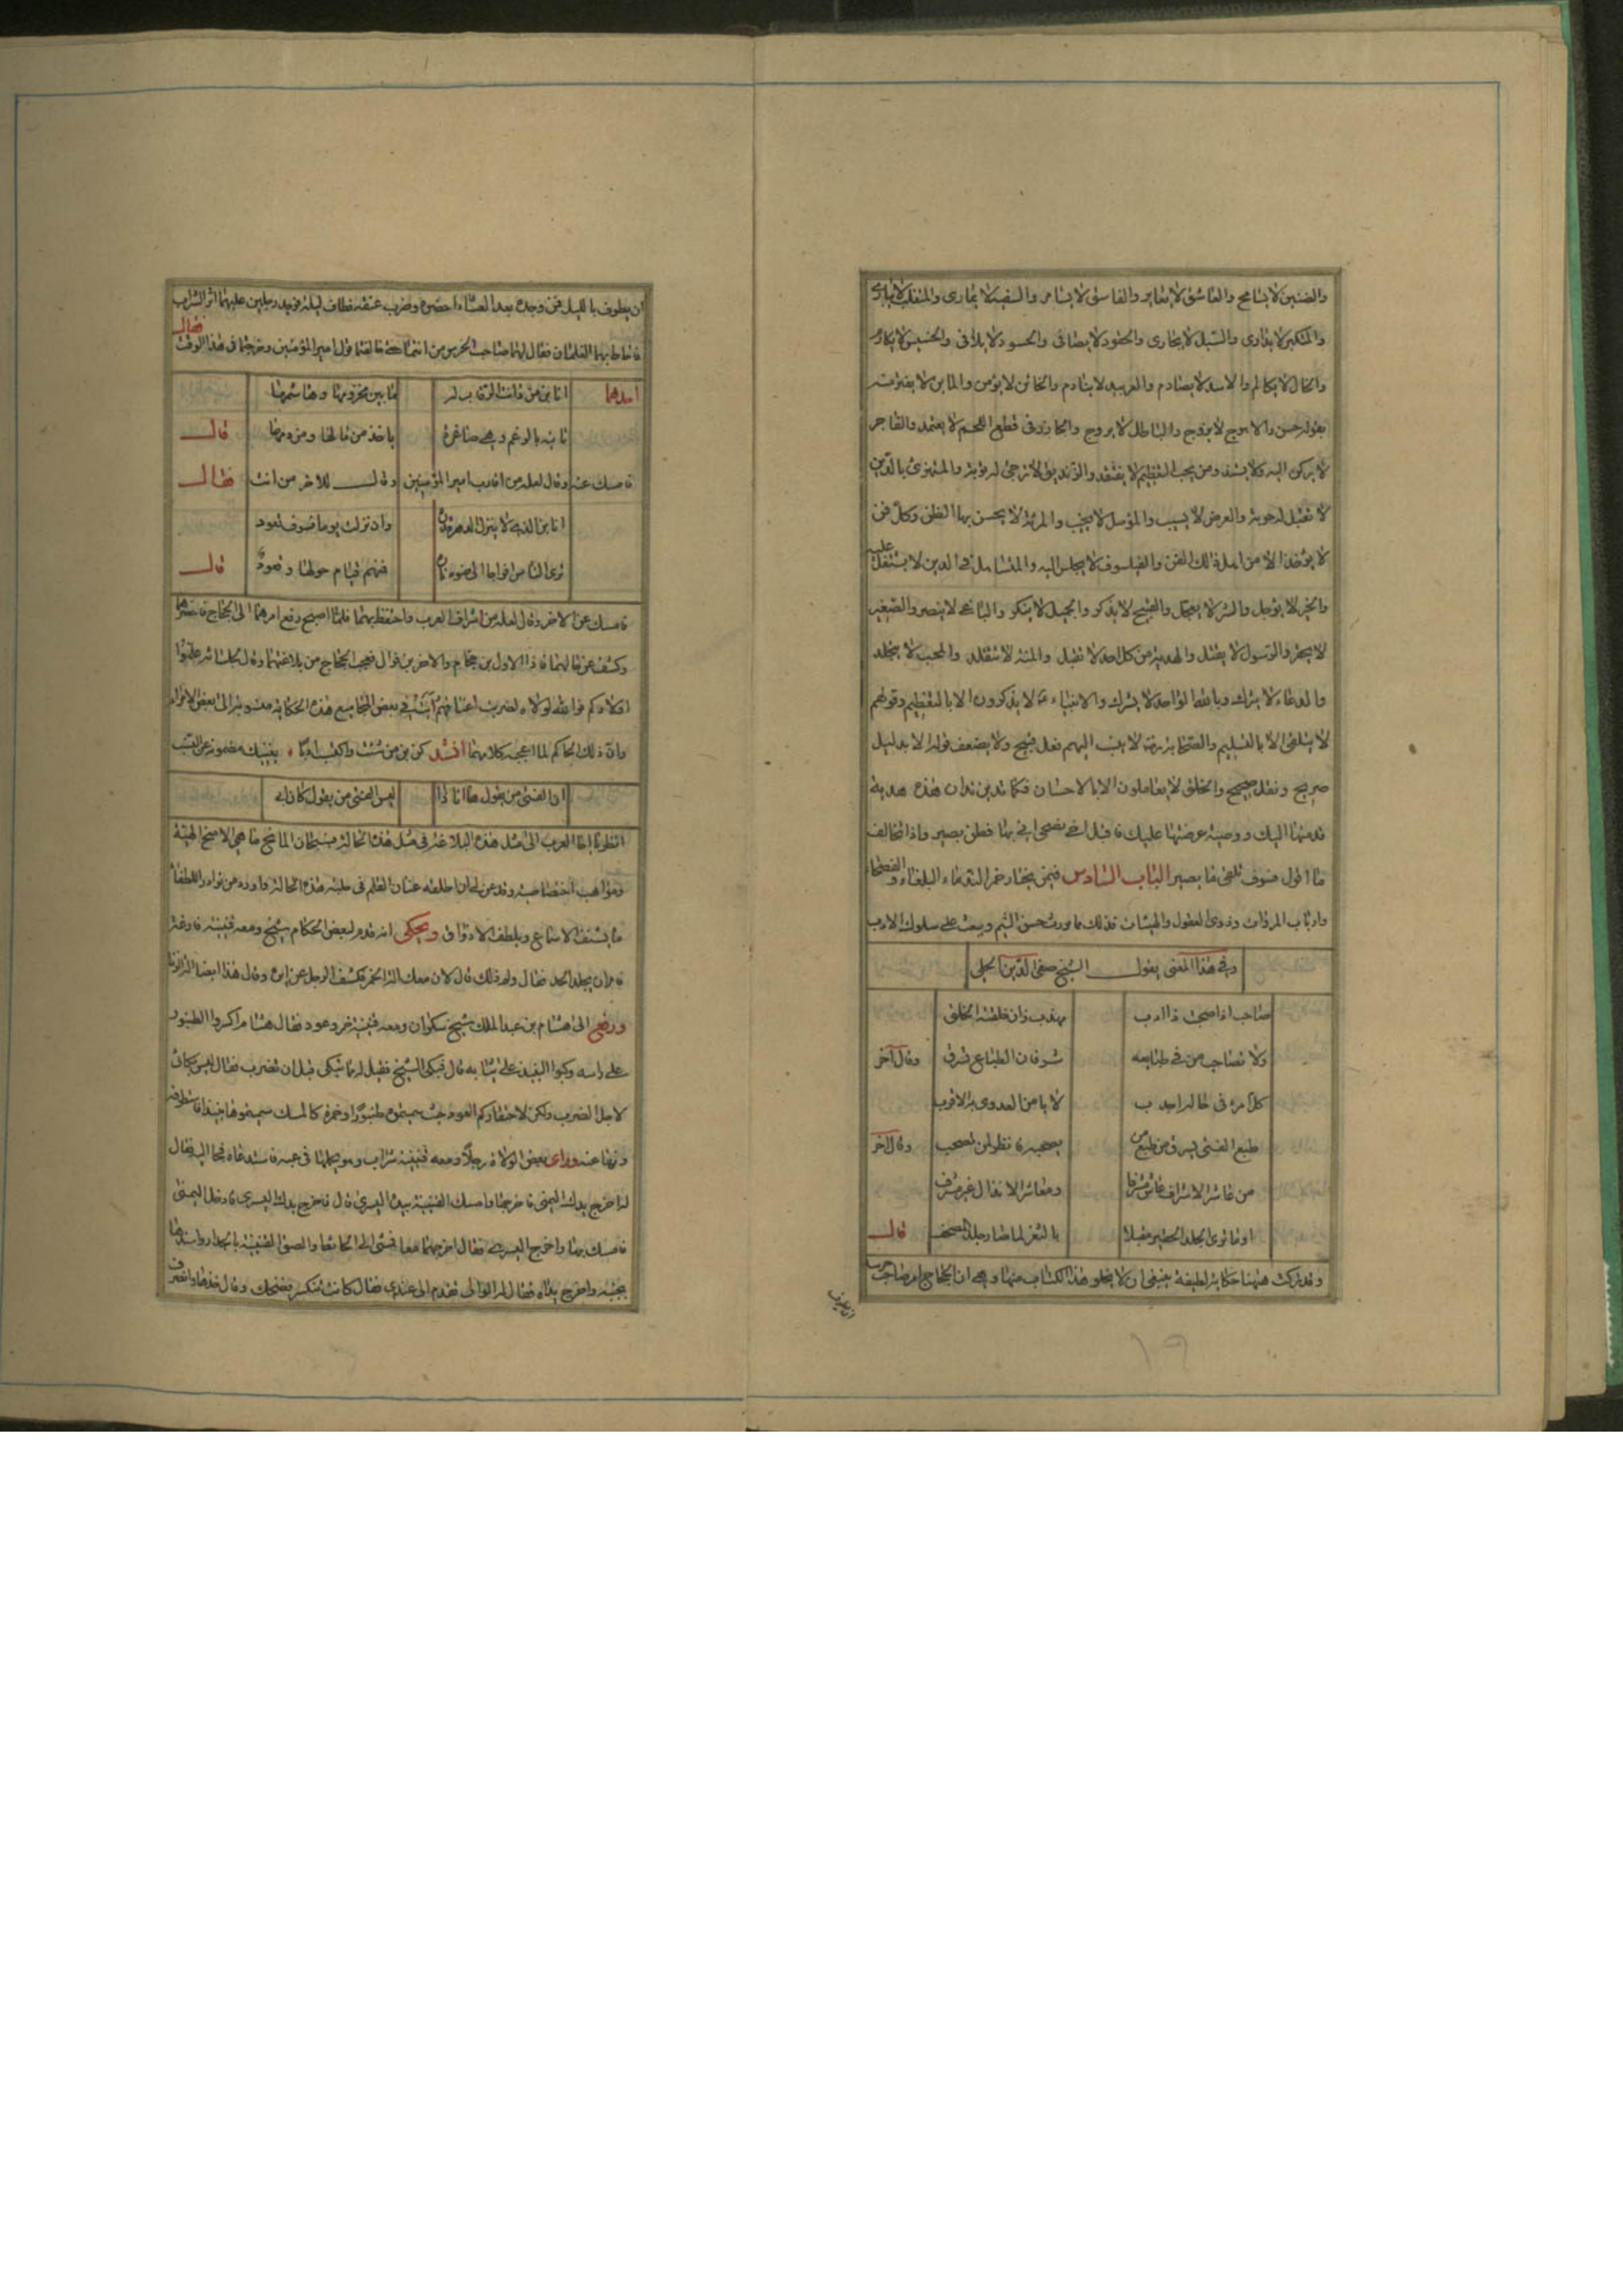 والضنين لا يسامح والعاشق لا يعاير والفاسق لا يسامر والسفيه لا يمارى والمنقلب لا
والمتكبر لا يدارى والسيل لا يجارى والحقود لا يصافى والحسود لا يلافى والخسيس لا
والحال لا والاسد لا يصادم والعربيد لا ينادم والخائن لا يؤمن
بقوله حسن والاهوج لا يزوج والباطل لا يروج وفى قطع اللحم لا يعتمد والفاجر
لا يركن اليه ولا ومن يحب التعظيم لا والزنديق لا ترجى له توبة والمستهزئ بالدين
لا تقبل له حوبة والعرض لا يسيب والمؤمل لا يخيب والمرأة لا يحسن بها الظن وكل فن
لا يؤخذ الا من اهل ذلك الفن والفيلسوف لا يجلس اليه والمتساهل فى الدين لا عليه
والخير لا يؤجل والشر لا يعجل والقبيح لا يذكر والجميل لا ينكر والباغى لا ينصر والصغير
لا يحقر والرسول لا يقتل والهدية من كل احد لا تقبل والمنة لا تتقلد والمحب لا
والدعاء لا يترك وبالله الواحد لا يشرك والانبياء لا يذكرون الا بالتعظيم وقولهم
لا يتلقى الا بالتسليم والصحابة لا ينسب اليهم فعل قبيح ولا يضعف قول الا بدليل
صريح ونقل صحيح والخلق لا يعاملون الا بالاحسان فكما تدين تدان هذه هدية
قدمتها اليك ووصية عرضتها عليك فاقبل فطن بصير واذا تخالف
ما اقول فسوف تلقى ما يصير الباب السادس فيمن يختار من الندماء البلغاء والفصحاء
وارباب المروات وذوى العقول والهيئات فذلك مما يورث حسن الشيم ويبعث على سلوك الادب
وفى هذا المعنى يقول الشيخ صفى الدين الحلى
صاحب اذا صحبت ذا ادب مهذب زان خلقه الخلق
ولا تصاحب من فى طبايعه شر فان الطباع تسرق وقال آخر
كل امرء فى حاله لا يامن العدوى به الاقرب
طبع الفتى يسرق من طبع من يصحبه فانظر لمن تصحب وقال آخر
من عاشر الاشراف عاش مشرفا ومعاشر الانذال غير مشرف
او ما ترى الجلد الحقير مقبلا بالثغر لما صار جلد المصحف قال
وقد ذكرت هيهنا حكاية لطيفة ينبغى ان لا يخلو هذا الكتاب منها وهى ان الحجاج امر صاحب
ان يطوف
ان يطوف بالليل فمن وجده بعد العشاء احضره وضرب عنقه فطاف ليلة فوجد رجلين عليهما اثر الشراب
فاحاط بهما الغلمان فقال لهما صاحب الحرس من انتما حتى خالفتما قول امير المؤمنين وخرجتما فى هذا الوقت فقال
احدهما انا ابن من دانت الرقاب له ما بين مخزومها وهاشمها
تاتيه بالرغم وهى صاغرة ياخذ من مالها ومن دمها قال
فامسك عنه وقال لعله من اقارب امير المؤمنين وقال للاخر من انت فقال
انا ابن الذى لا ينزل الدهر قدره وان نزلت يوما فسوف تعود
ترى الناس افواجا الى ضوء ناره فمنهم قيام حولها وقعود قال
فامسك عن الاخر وقال لعله من اشراف العرب واحتفظ بهما فلما اصبح رفع امرهما الى الحجاج فاحضرهما
وكشف عن حالهما فاذا الاول ابن حجام والاخر ابن فوال فعجب الحجاج من بلاغتهما وقال لجلسائه علموا
اولادكم فوالله لولاه لضربت اعناقهم رأيت فى بعض المجاميع هذه الحكاية منسوبة الى بعض الامراء
وان ذلك الحاكم لما اعجبه كلامهما انشد كن ابن من شئت واكتسب ادبا يغنيك مضمونه عن النسب
ان الفتى من يقول ها انا ذا ليس الفتى من يقول كان ابى
انظر يا اخا العرب الى مثل هذه البلاغة فى مثل هذه الحالة فسبحان المانح ما هى الا منح الهية
ومواهب اختصاصية وقد عن لى ان اطلقه عنان القلم فى حلبة هذه الحالة واورد من نوادر اللطفاء
ما يشنف الاسماع ويلطف الاذواق ويحكى انه قدم لبعض الحكام شيخ ومعه قنينة فارغة
فامر ان يجلد الحد فقال ولم ذلك قال لان معك آلة الخمر فكشف الرجل عن ايره وقال هذا ايضا آلة الزنا
ورفع الى هشام بن عبد الملك شيخ سكران ومعه قنينة خمر وعود فقال هشام اكسروا الطنبور
على راسه وكبوا النبيذ على ثيابه قال فبكى الشيخ فقيل له ما يبكى قبل ان تضرب فقال ليس بكائى
لاجل الضرب ولكن لاحتقاركم العود حيث سميتموه طنبورا وخمرة كالمسك سميتموها نبيذا فاستظرفه
وعفا عنه وراى بعض الولاة رجلا ومعه قنينة شراب وهو يحملها فى عبه فاستدعاه فجاء اليه فقال
له اخرج يدك اليمنى فاخرجها وامسك القنينة بيده اليسرى قال فاخرج يدك اليسرى فادخل اليمنى
فامسك بها واخرج اليسرى فقال اخرجهما معا فمشى الى الحائط والصق القنينة بالجدار واسندها
بجنبه واخرج يداه فقال له الوالى تقدم الى عندى فقال كانت تنكسر فضحك وقال خذها وانصرف